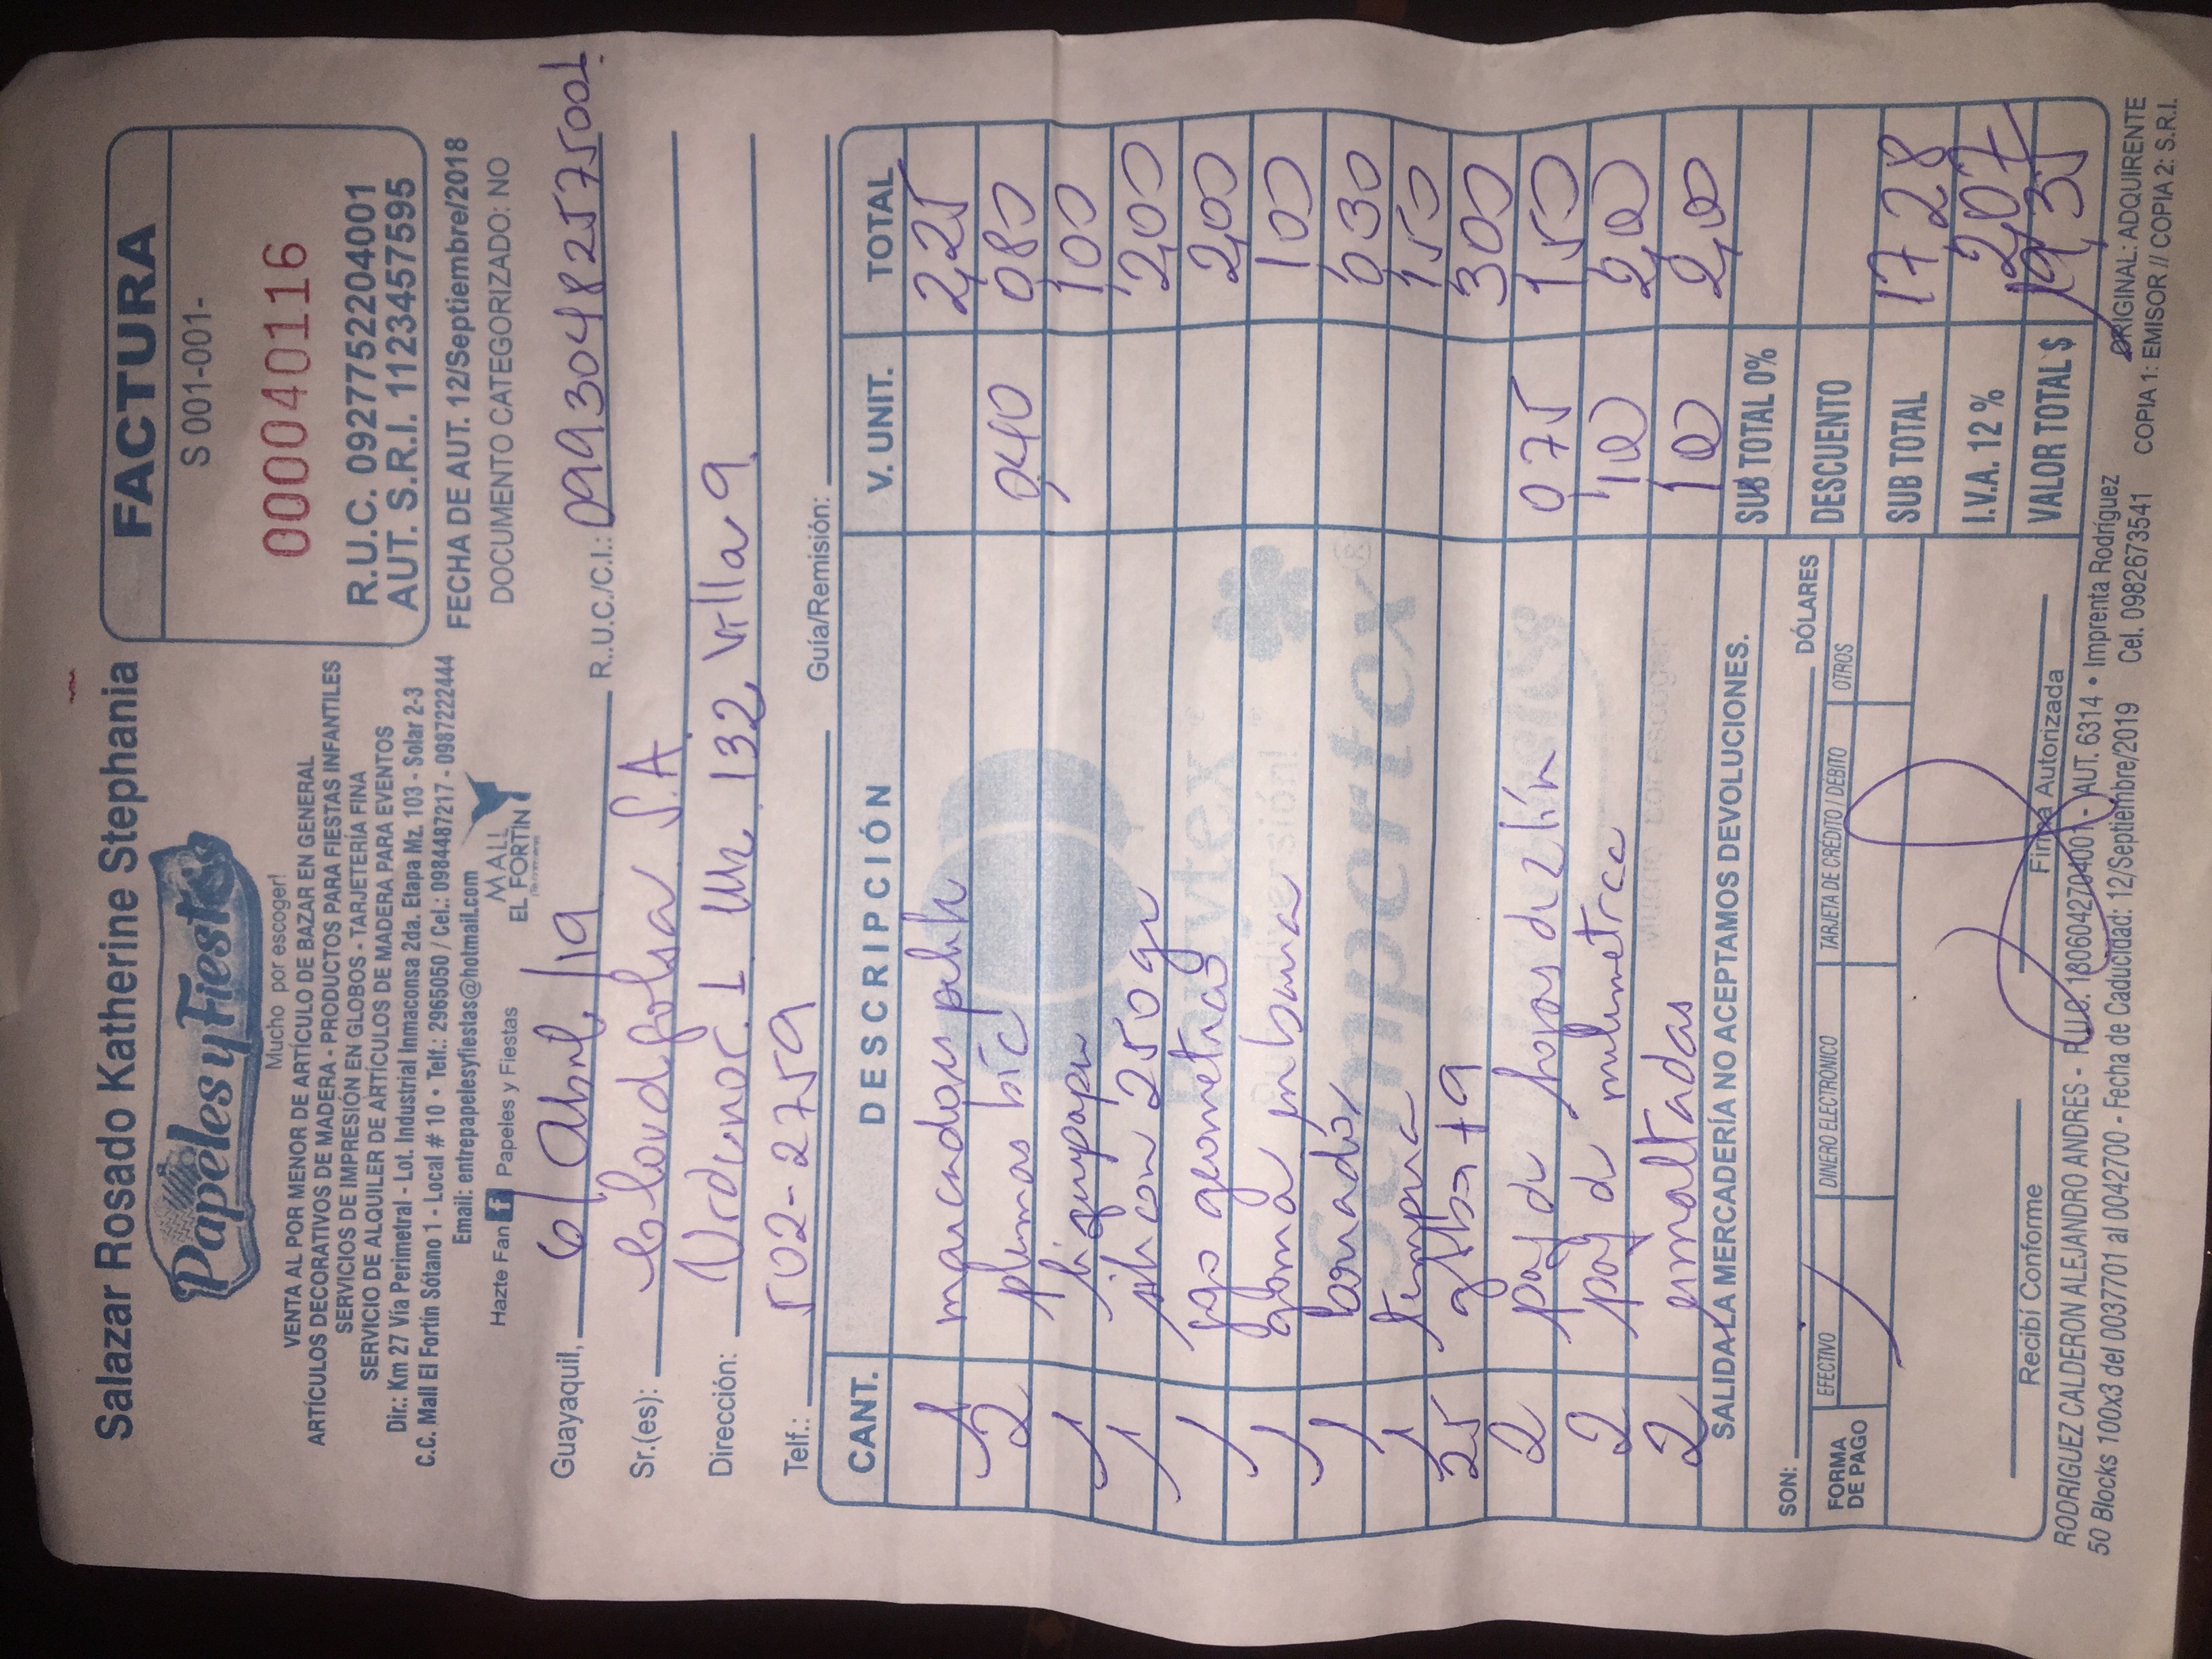 Salazar Rosado Katherine Stephania
Mucho por escoger!
Papeles y Fiestas
VENTA AL POR MENOR DE ARTÍCULO DE BAZAR EN GENERAL
ARTÍCULOS DECORATIVOS DE MADERA - PRODUCTOS PARA FIESTAS INFANTILES
SERVICIOS DE IMPRESIÓN EN GLOBOS - TARJETERÍA FINA
SERVICIO DE ALQUILER DE ARTÍCULOS DE MADERA PARA EVENTOS
Dir.: Km 27 Vía Perimetral - Lot. Industrial Inmaconsa 2da. Etapa Mz. 103 - Solar 2-3
C.C. Mall El Fortín Sótano 1 - Local # 10 • Telf.: 2965050 / Cel.: 0984487217 - 0987222444
Email: entrepapelesyfiestas@hotmail.com
Hazte Fan f Papeles y Fiestas
MALL
EL FORTÍN
FACTURA
S 001-001-
000040116
R.U.C. 0927752204001
AUT. S.R.I. 1123457595
FECHA DE AUT. 12/Septiembre/2018
DOCUMENTO CATEGORIZADO: NO
Guayaquil, 6/Abril/19 R..U.C./C.I.: 0993048257001
Sr.(es): S.A
Dirección: Urdenor 1 Mz. 132, Villa 9.
Telf.: 502-2759 Guía/Remisión:
CANT. DESCRIPCIÓN V. UNIT. TOTAL
1 marcadores 2,25
2 plumas bic 0,40 080
1 100
1 silicon 250gr 2,00
1 jgo geometrico 2,00
1 goma 100
1 borrador 030
1 tempera 150
25 globos t9 300
2 paq de hojas de 075 1,50
2 paq d 1,00 2,00
2 esmaltadas 100 2,00
SALIDA LA MERCADERÍA NO ACEPTAMOS DEVOLUCIONES.
SON: DÓLARES
FORMA DE PAGO
EFECTIVO DINERO ELECTRÓNICO TARJETA DE CRÉDITO / DÉBITO OTROS
SUB TOTAL 0%
DESCUENTO
SUB TOTAL 17,28
I.V.A. 12 % 2,07
VALOR TOTAL $ 19,35
Recibí Conforme Firma Autorizada
RODRIGUEZ CALDERON ALEJANDRO ANDRES - R.U.C. 1806042704001 - AUT. 6314 • Imprenta Rodríguez
50 Blocks 100x3 del 0037701 al 0042700 - Fecha de Caducidad: 12/Septiembre/2019 Cel. 0982673541
ORIGINAL: ADQUIRENTE
COPIA 1: EMISOR // COPIA 2: S.R.I.
Sempertex